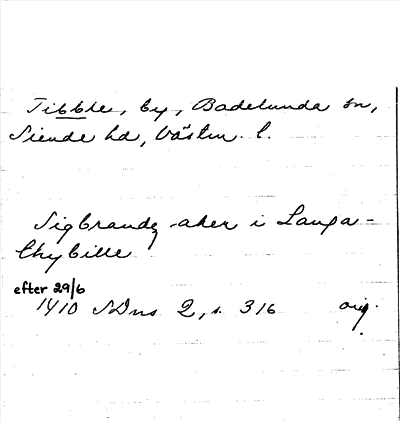 Tibble, by, Badelunda sn,
Siende hd, Västm. l.
Sigbrandz aker i Langa-
thybille
efter 29/6
1410 SDns 2, s. 316 orig.